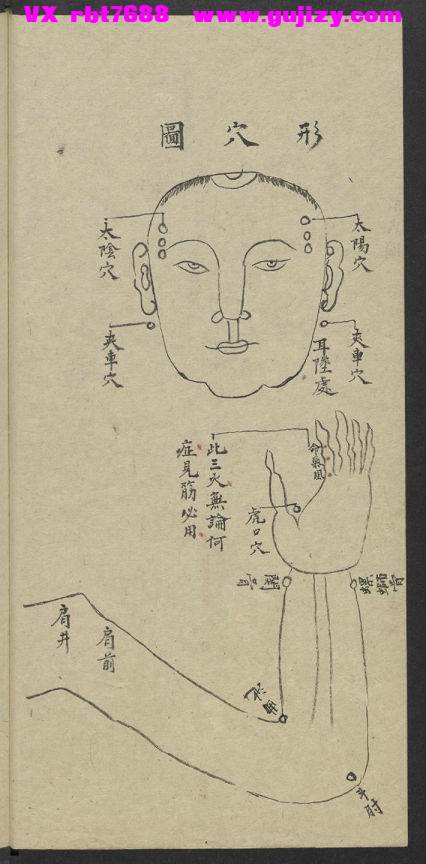 VX rbt7688 www.gujizy.com
形穴圖
太陽穴
太陰穴
夾車穴
耳陲處
夾車穴
命無風
此三火無論何
症見筋必用
虎口穴
螺螄骨
肩前
肩井
斗肘